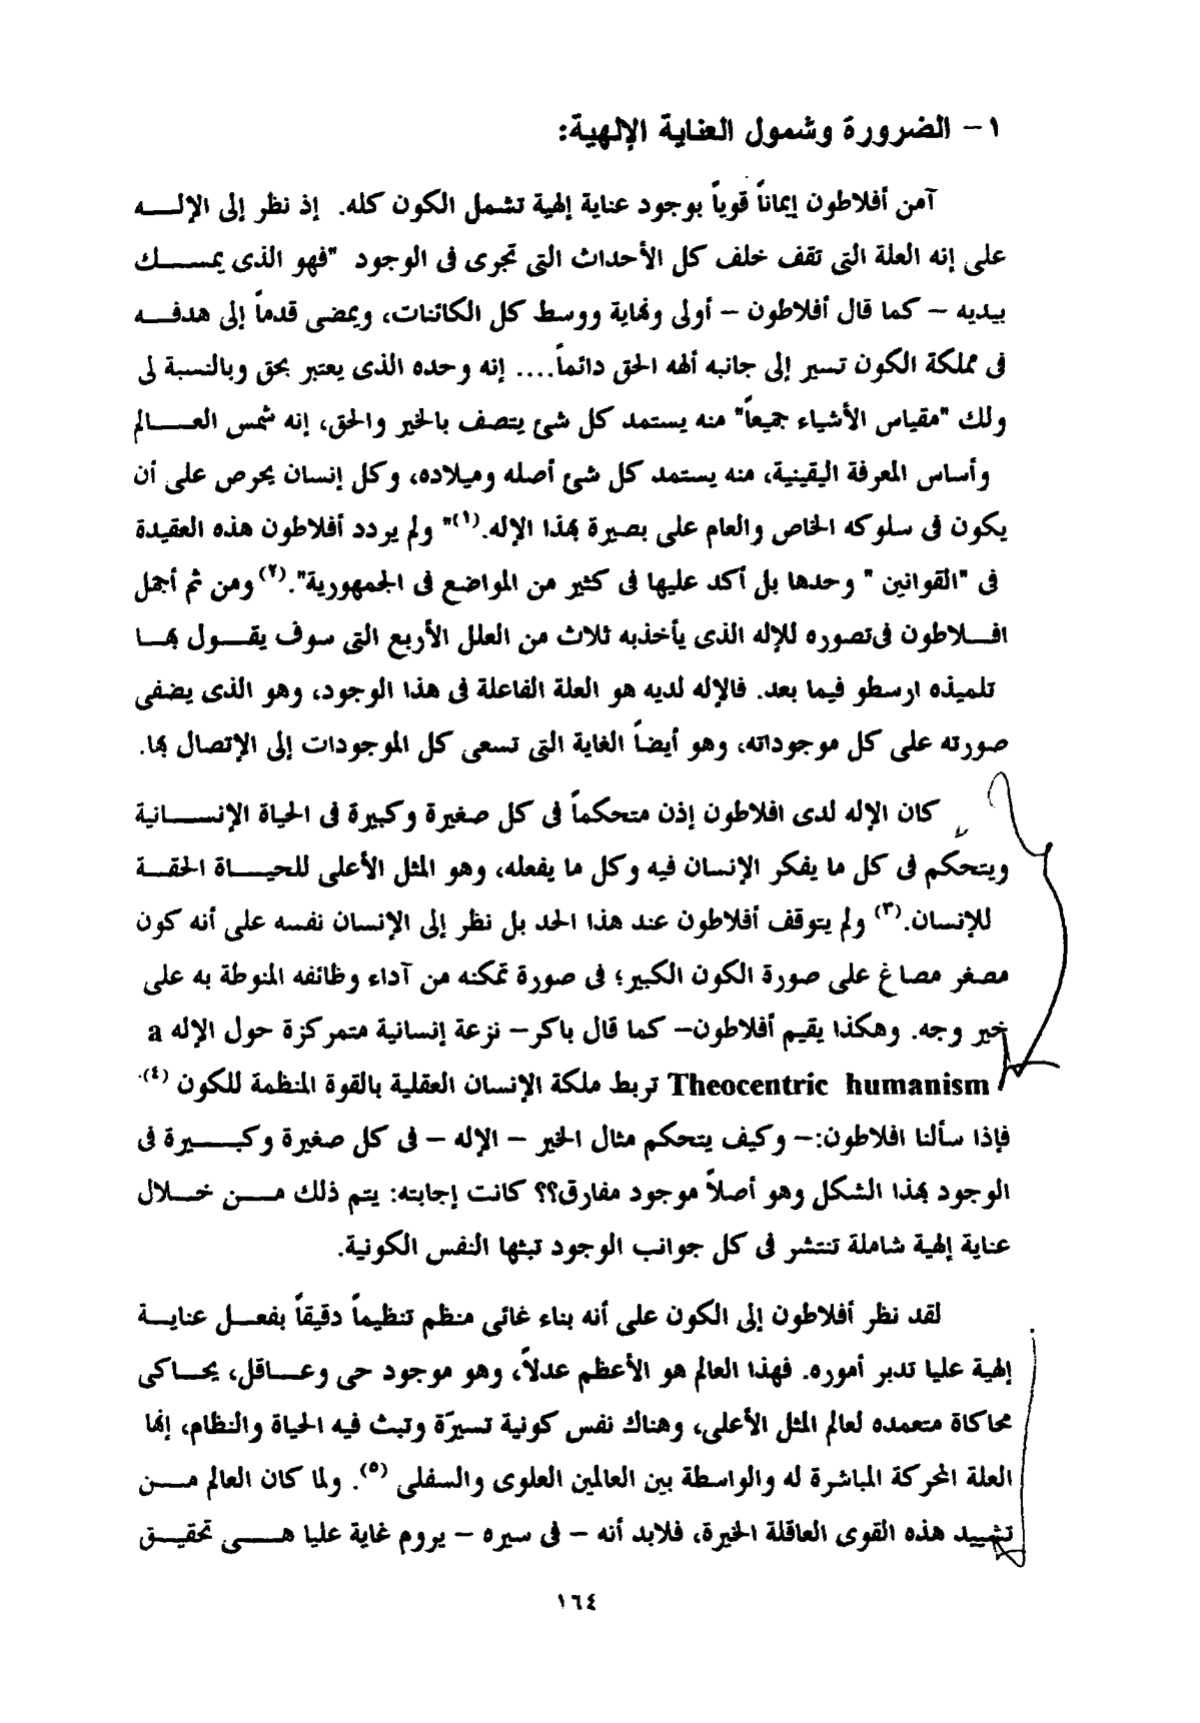 ١- الضرورة وشمول العناية الإلهية:
آمن أفلاطون إيماناً قوياً بوجود عناية إلهية تشمل الكون كله. إذ نظر إلى الإلـــه
على إنه العلة التى تقف خلف كل الأحداث التى تجرى فى الوجود "فهو الذى يمســـك
بيديه – كما قال أفلاطون – أولى ونهاية ووسط كل الكائنات، ويمضى قدماً إلى هدفـــه
فى مملكة الكون تسير إلى جانبه ألهه الحق دائماً.... إنه وحده الذى يعتبر بحق وبالنسبة لى
ولك "مقياس الأشياء جميعاً" منه يستمد كل شئ يتصف بالخير والحق، إنه شمس العـــالم
وأساس المعرفة اليقينية، منه يستمد كل شئ أصله وميلاده، وكل إنسان يحرص على أن
يكون فى سلوكه الخاص والعام على بصيرة بهذا الإله.(١)" ولم يردد أفلاطون هذه العقيدة
فى "القوانين " وحدها بل أكد عليها فى كثير من المواضع فى الجمهورية".(٢) ومن ثم أجمل
افـــلاطون فى تصوره للإله الذى يأخذبه ثلاث من العلل الأربع التى سوف يقـــول بهـــا
تلميذه ارسطو فيما بعد. فالإله لديه هو العلة الفاعلة فى هذا الوجود، وهو الذى يضفى
صورته على كل موجوداته، وهو أيضاً الغاية التى تسعى كل الموجودات إلى الإتصال بها.
كان الإله لدى افلاطون إذن متحكماً فى كل صغيرة وكبيرة فى الحياة الإنســـانية
ويتحكم فى كل ما يفكر الإنسان فيه وكل ما يفعله، وهو المثل الأعلى للحيـــاة الحقـــة
للإنسان.(٣) ولم يتوقف أفلاطون عند هذا الحد بل نظر إلى الإنسان نفسه على أنه كون
مصغر مصاغ على صورة الكون الكبير؛ فى صورة تمكنه من آداء وظائفه المنوطة به على
خير وجه. وهكذا يقيم أفلاطون– كما قال باكر– نزعة إنسانية متمركزة حول الإله a
Theocentric humanism تربط ملكة الإنسان العقلية بالقوة المنظمة للكون (٤).
فإذا سألنا افلاطون:– وكيف يتحكم مثال الخير – الإله – فى كل صغيرة وكبـــيرة فى
الوجود بهذا الشكل وهو أصلاً موجود مفارق؟؟ كانت إجابته: يتم ذلك مـــن خـــلال
عناية إلهية شاملة تنتشر فى كل جوانب الوجود تبثها النفس الكونية.
لقد نظر أفلاطون إلى الكون على أنه بناء غائى منظم تنظيماً دقيقاً بفعـــل عنايـــة
إلهية عليا تدبر أموره. فهذا العالم هو الأعظم عدلاً، وهو موجود حى وعـــاقل، يحـــاكى
محاكاة متعمده لعالم المثل الأعلى، وهناك نفس كونية تسيرّة وتبث فيه الحياة والنظام، إنها
العلة المحركة المباشرة له والواسطة بين العالمين العلوى والسفلى (٥). ولما كان العالم مـــن
تشييد هذه القوى العاقلة الخيرة، فلابد أنه – فى سيره – يروم غاية عليا هـــى تحقيـــق
١٦٤